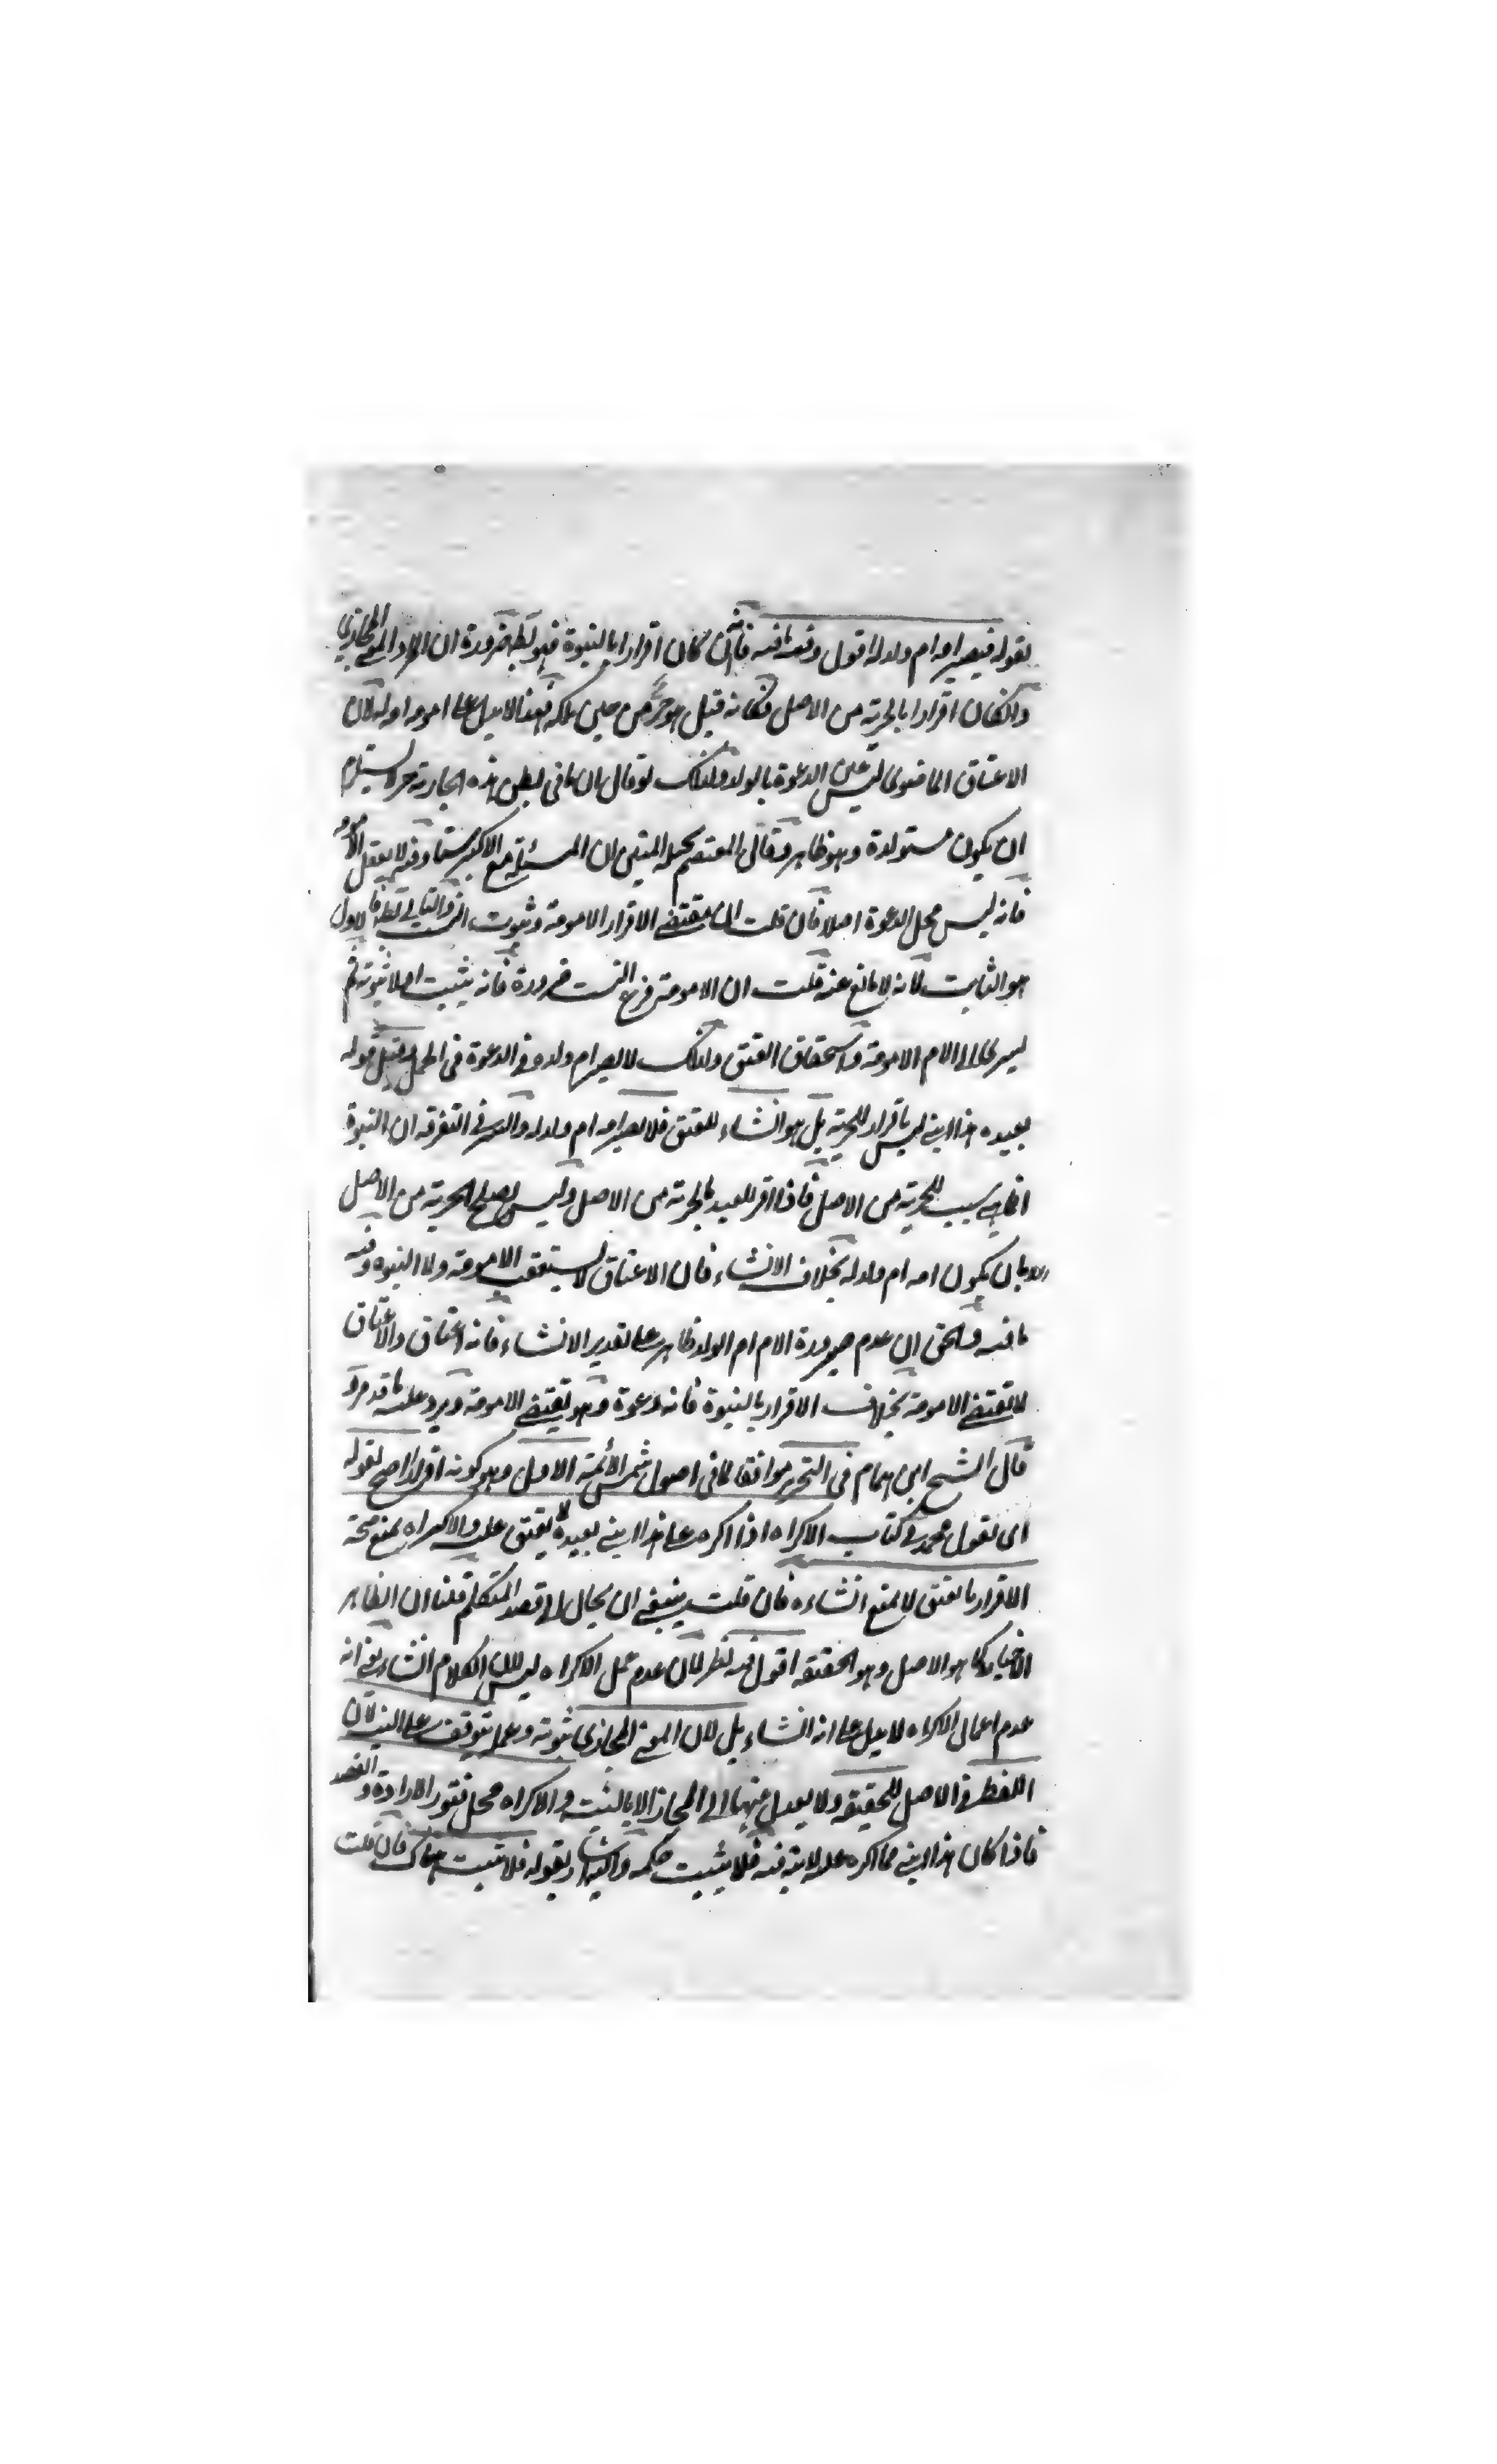 بقوله فيصير امه ام ولد له اقول وفيه ما فيه فانه ان كان اقرارا بالبنوة فهو بط ضرورة ان المراد المعنى المجازي
وان كان اقرارا بالحرية من الاصل فكانه قيل هو حر من حين ملكه فهذا لا يدل على امومه امه له لان
الاعتاق الماضوي ليس عين الدعوة بالولد ولذلك لو قال ان ما في بطن هذه الجارية حر لا يستلزم
ان يكون مستولدة وهو ظاهر وقال المعتصم بحبله المتين ان المسئلة مع الاكبر سنا وفيه لا يعقل الامومه
فانه ليس محل الدعوة اصلا فان قلت ان مقتضى الاقرار الامومة وثبوت النسب والثاني بطل فالاول
هو الثابت لانه لا مانع عنه قلت ان الامومة فرع النسب ضرورة فانه يثبت اصلا ثبوته ثم
يسرى الى الام الامومة واستحقاق العتق ولذلك لا يصير ام ولده في الدعوة في الحمل وقيل قوله
لعبده هذا ابني ليس باقرار للحرية بل هو انشاء للعتق فلا يصير امه ام ولد له والسر في التفرقه ان البنوة
انما هي سبب للحرية من الاصل فاذا اقر للعبد بالحرية من الاصل وليس يصلح الحرية من الاصل
الا بان يكون امه ام ولد له بخلاف الانشاء فان الاعتاق لا يستعقب الامومة ولا البنوه وفيه
ما فيه والحق ان عدم صيرورة الام ام الولد ظاهر على تقدير الانشاء فانه اعتاق والاعتاق
لا يقتضي الامومة بخلاف الاقرار بالبنوة فانه دعوة وهو يقتضي الامومة ويرد عليه ما قد مر و
قال الشيخ ابن همام في التحرير موافقا لما في اصول شمس الأئمة الاول وهو كونه اقرارا اصح لقوله
اى لقول محمد في كتاب الاكراه اذا اكره على هذا ابني لعبده لا يعتق عليه والاكراه يمنع صحة
الاقرار بالعتق لا يمنع انشاءه فان قلت ينبغي ان يحال الى قصد المتكلم قلنا ان الظاهر
الاخبار كما هو الاصل وهو الحقيقه اقول فيه نظر لان عدم عمل الاكراه ليس لان الكلام انشاء يعني انه
عدم اعمال الاكراه لا يدل على انه انشاء بل لان المعنى المجازى ثبوته وعمله يتوقف على النيه لان
اللفظ في الاصل للحقيقه ولا يعدل عنها الى المجاز الا بالنيه والاكراه محل فتور الارادة والقصد
فاذا كان هذا ابني مما اكره عليه لا نية فيه فلا يثبت حكمه واليه اشار بقوله فلا تثبت هناك فان قلت